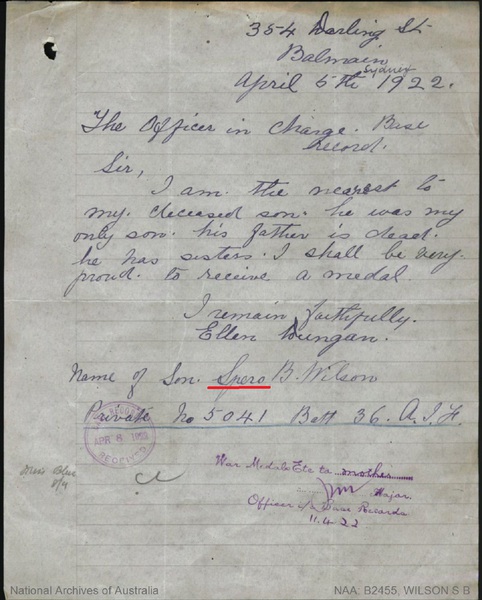 354 Darling St
Balmain
Sydney
April 5th 1922.
The Officer in Charge. Base
record.
Sir,
I am the nearest to
my deceased son. he was my
only son. his father is dead.
he has sisters. I shall be very
proud. to receive a medal
I remain faithfully.
Ellen Dungan.
Name of Son. Spero B. Wilson
Private No 5041 Batt 36. A.I.F.
APR 6 1922
War Medals Etc to mother
Major.
Officer i/c Base Records
11.4.22
National Archives of Australia
NAA: B2455, WILSON S B